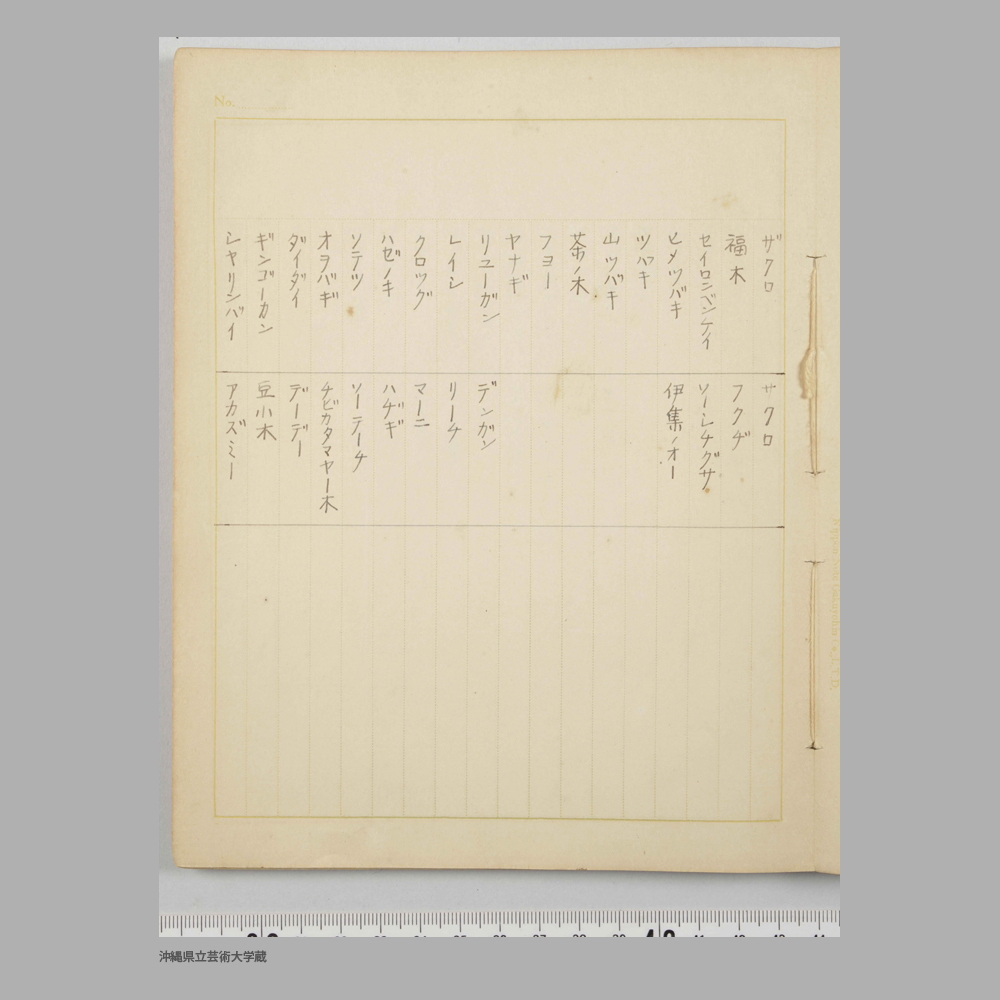 No.
ザクロ サクロ
福木 フクヂ
セイロンベンケイ ソーシチグサ
ヒメツバキ 伊集ノオー
ツバキ
山ツバキ
茶ノ木
フヨー
ヤナギ
リユーガン デンガン
レイシ リーチ
クロツグ マーニ
ハゼノキ ハヂギ
ソテツ ソーテーチ
オヲバギ チビカタマヤー木
ダイダイ デーデー
ギンゴーカン 豆小木
シヤリンバイ アカズミー
沖縄県立芸術大学蔵